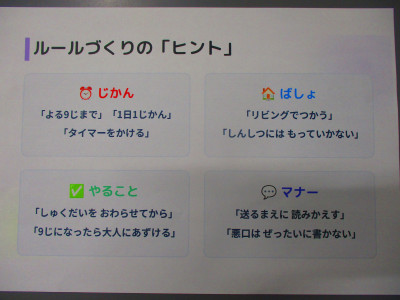 ルールづくりの「ヒント」
じかん
「よる9じまで」「1日1じかん」
「タイマーをかける」
ばしょ
「リビングでつかう」
「しんしつには もっていかない」
やること
「しゅくだいを おわらせてから」
「9じになったら大人にあずける」
マナー
「送るまえに 読みかえす」
「悪口は ぜったいに書かない」